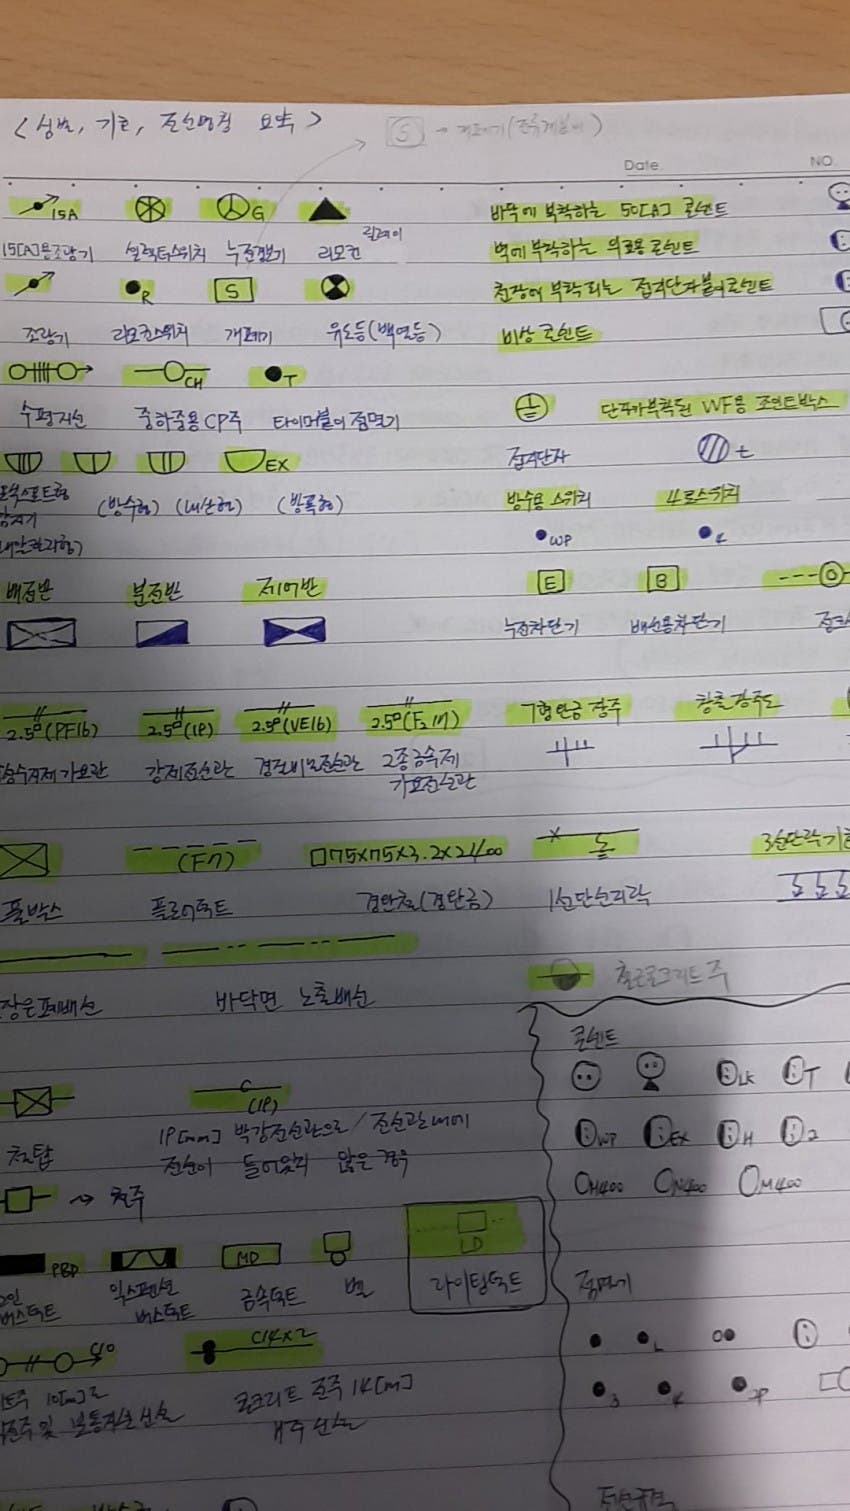 <심벌, 기호, 전선명칭 요약>
S → 개폐기(전류계붙이)
Date NO.
15A G
15[A]용조광기 셀렉터스위치 누전경보기 리모컨 릴레이
R S
조광기 리모컨스위치 개폐기 유도등(백열등)
CH T
수평지선 중하중용CP주 타이머붙이 점멸기
EX
(방수형) (내산형) (방폭형)
배전반 분전반 제어반
2.5°(PF16) 2.5°(19) 2.5°(VE16) 2.5°(F₂ 17)
합성수지제 가요관 강제전선관 경질비닐전선관 2종금속제
가요전선관
(F7) □75×75×3.2×2400
풀박스 플로어덕트 경완철(경완금)
천장은폐배선 바닥면 노출배선
C
(19)
철탑 19[mm] 박강전선관으로 / 전선관내에
전선이 들어있지 않은 경우
→ 철주
PBD MD LD
익스펜션 금속덕트 벨 라이팅덕트
버스덕트 버스덕트
C14×2
콘크리트 전주 14[m]
바닥에 부착하는 50[A] 콘센트
벽에 부착하는 의료용 콘센트
천장에 부착되는 접지단자붙이 콘센트
비상 콘센트
단자가부착된 VVF용 조인트박스
접지단자 t
방수용 스위치 4로스위치
WP 4
E B
누전차단기 배선용차단기
ㄱ형완금 장주 창출 장주도
1선단선지락
철근콘크리트주
콘센트
LK T
WP EX H 2
H400 N400 M400
점멸기
L
3 4 2P